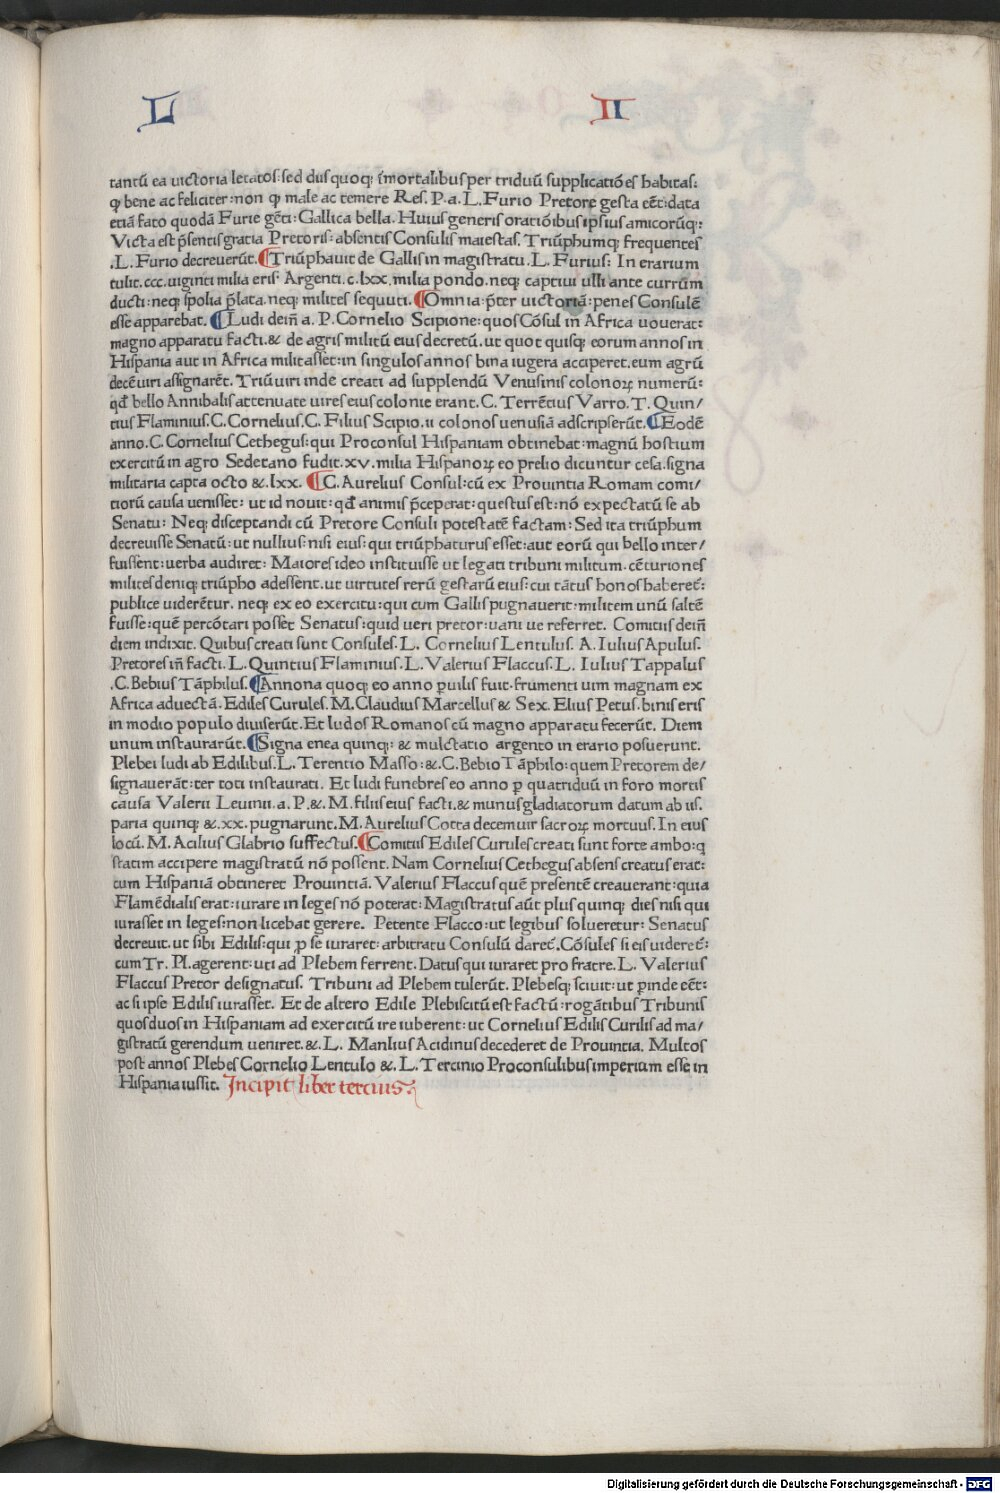 L II
tantū ea uictoria letatos: sed dus quoq; īmortalibus per triduū supplicatiōes habitas:
q̨ bene ac feliciter: non q̨ male ac temere Res. P. a. L. Furio Pretore gesta eēt: data
etiā fato quodā Furie gēti: Gallica bella. Huius generis oratiōibus ipsius amicorūq;:
Victa est p̄sentis gratia Pretoris: absentis Consulis maiestas. Triūphumq; frequentes
.L. Furio decreuerūt. ¶Triūphauit de Gallis in magistratu. L. Furius: In erarium
tulit. ccc. uiginti milia eris: Argenti. c. lxx. milia pondo. neq; captiui ulli ante currūm
ducti: neq; spolia p̄lata. neq; milites sequuti. ¶Omnia: p̄ter uictoriā: penes Consulē
esse apparebat. ¶Ludi dein̄ a. P. Cornelio Scipione: quos Cōsul in Africa uouerat:
magno apparatu facti. & de agris militū eius decretū. ut quot quisq; eorum annos in
Hispania aut in Africa militasset: in singulos annos bina iugera acciperet. eum agrū
decēuiri assignarēt. Triūuiri inde creati ad supplendū Venusinis colonoꝝ numerū:
qđ bello Annibalis attenuate uires eius colonie erant. C. Terrētius Varro. T. Quin/
tius Flaminius. C. Cornelius. C. Filius Scipio. ii colonos uenusiā adscripserūt. ¶Eodē
anno. C. Cornelius Cethegus: qui Proconsul Hispaniam obtinebat: magnū hostium
exercitū in agro Sedetano fudit. xv. milia Hispanoꝝ eo prelio dicuntur cesa. signa
militaria capta octo &. lxx. ¶C. Aurelius Consul: cū ex Prouintia Romam comi/
tiorū causa uenisset: ut id nouit: qđ animis p̄ceperat: questus est: nō expectatū se ab
Senatu: Neq; disceptandi cū Pretore Consuli potestatē factam: Sed ita triūphum
decreuisse Senatū: ut nullius: nisi eius: qui triūphaturus esset: aut eorū qui bello inter/
fuissent: uerba audiret: Maiores ideo instituisse ut legati tribuni militum. cēturiones
milites deniq; triūpho adessent. ut uirtutes rerū gestarū eius: cui tātus honos haberet̄:
publice uiderētur. neq; ex eo exercitu: qui cum Gallis pugnauerit: militem unū saltē
fuisse: quē percōtari posset Senatus: quid ueri pretor: uani ue referret. Comitiis dein̄
diem indixit. Quibus creati sunt Consules. L. Cornelius Lentulus. A. Iulius Apulus.
Pretores in̄ facti. L. Quintius Flaminius. L. Valerius Flaccus. L. Iulius Tappalus
.C. Bebius Tāphilus. ¶Annona quoq; eo anno ꝑuilis fuit. frumenti uim magnam ex
Africa aduectā. Ediles Curules. M. Claudius Marcellus & Sex. Elius Petus. binis eris
in modio populo diuiserūt. Et ludos Romanos cū magno apparatu fecerūt. Diem
unum instaurarūt. ¶Signa enea quinq;: & mulctatio argento in erario posuerunt.
Plebei ludi ab Edilibus. L. Terentio Masso: &. C. Bebio Tāphilo: quem Pretorem de/
signauerāt: ter toti instaurati. Et ludi funebres eo anno ꝑ quatriduū in foro mortis
causa Valerii Leuinii. a. P. &. M. filiis eius facti. & munus gladiatorum datum ab iis.
paria quinq; &. xx. pugnarunt. M. Aurelius Cotta decemuir sacroꝝ mortuus. In eius
locū. M. Acilius Glabrio suffectus. ¶Comitiis Ediles Curules creati sunt forte ambo: q̨
statim accipere magistratū nō possent. Nam Cornelius Cethegus absens creatus erat:
cum Hispaniā obtineret Prouintiā. Valerius Flaccus quē presentē creauerant: quia
Flamē dialis erat: iurare in leges nō poterat: Magistratus aūt plus quinq; dies nisi qui
iurasset in leges: non licebat gerere. Petente Flacco: ut legibus solueretur: Senatus
decreuit. ut sibi Edilis: qui ꝓ se iuraret: arbitratu Consulū daret̄. Cōsules si eis uideret̄:
cum Tr. Pl. agerent: uti ad Plebem ferrent. Datus qui iuraret pro fratre. L. Valerius
Flaccus Pretor designatus. Tribuni ad Plebem tulerūt. Plebesq; sciuit: ut ꝑinde eēt:
ac si ipse Edilis iurasset. Et de altero Edile Plebiscitū est factū: rogātibus Tribunis
quos duos in Hispaniam ad exercitū ire iuberent: ut Cornelius Edilis Curilis ad ma/
gistratū gerendum ueniret. &. L. Manlius Acidinus decederet de Prouintia. Multos
post annos Plebes Cornelio Lentulo &. L. Tercinio Proconsulibus imperium esse in
Hispania iussit. Incipit liber tercius.
Digitalisierung gefördert durch die Deutsche Forschungsgemeinschaft - DFG